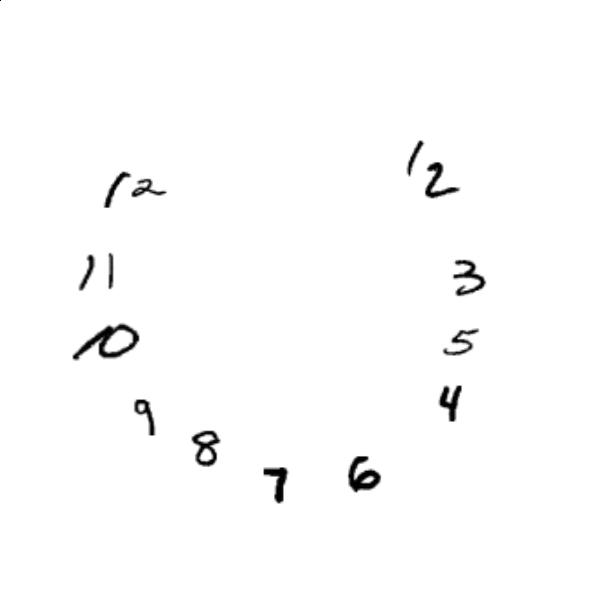 12
1 2
11
3
10
5
4
9
8
7
6